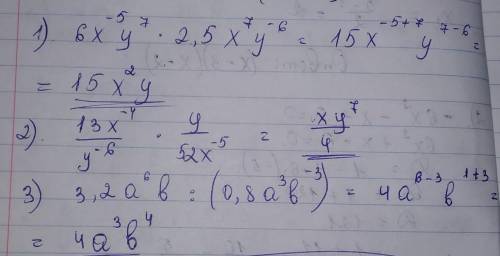 1) 6x⁻⁵y⁷ · 2,5x⁷y⁻⁶ = 15x⁻⁵⁺⁷y⁷⁻⁶ =
= 15x²y
2). 13x⁻⁴/y⁻⁶ · y/52x⁻⁵ = xy⁷/4
3) 3,2a⁶b : (0,8a³b⁻³) = 4a⁶⁻³b¹⁺³ =
= 4a³b⁴